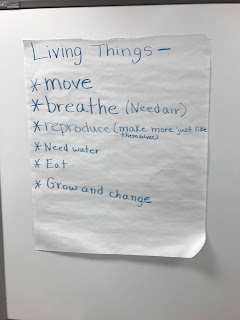 Living Things —
* move
* breathe (Need air)
* reproduce (make more just like
themselves)
* Need water
* Eat
* Grow and change